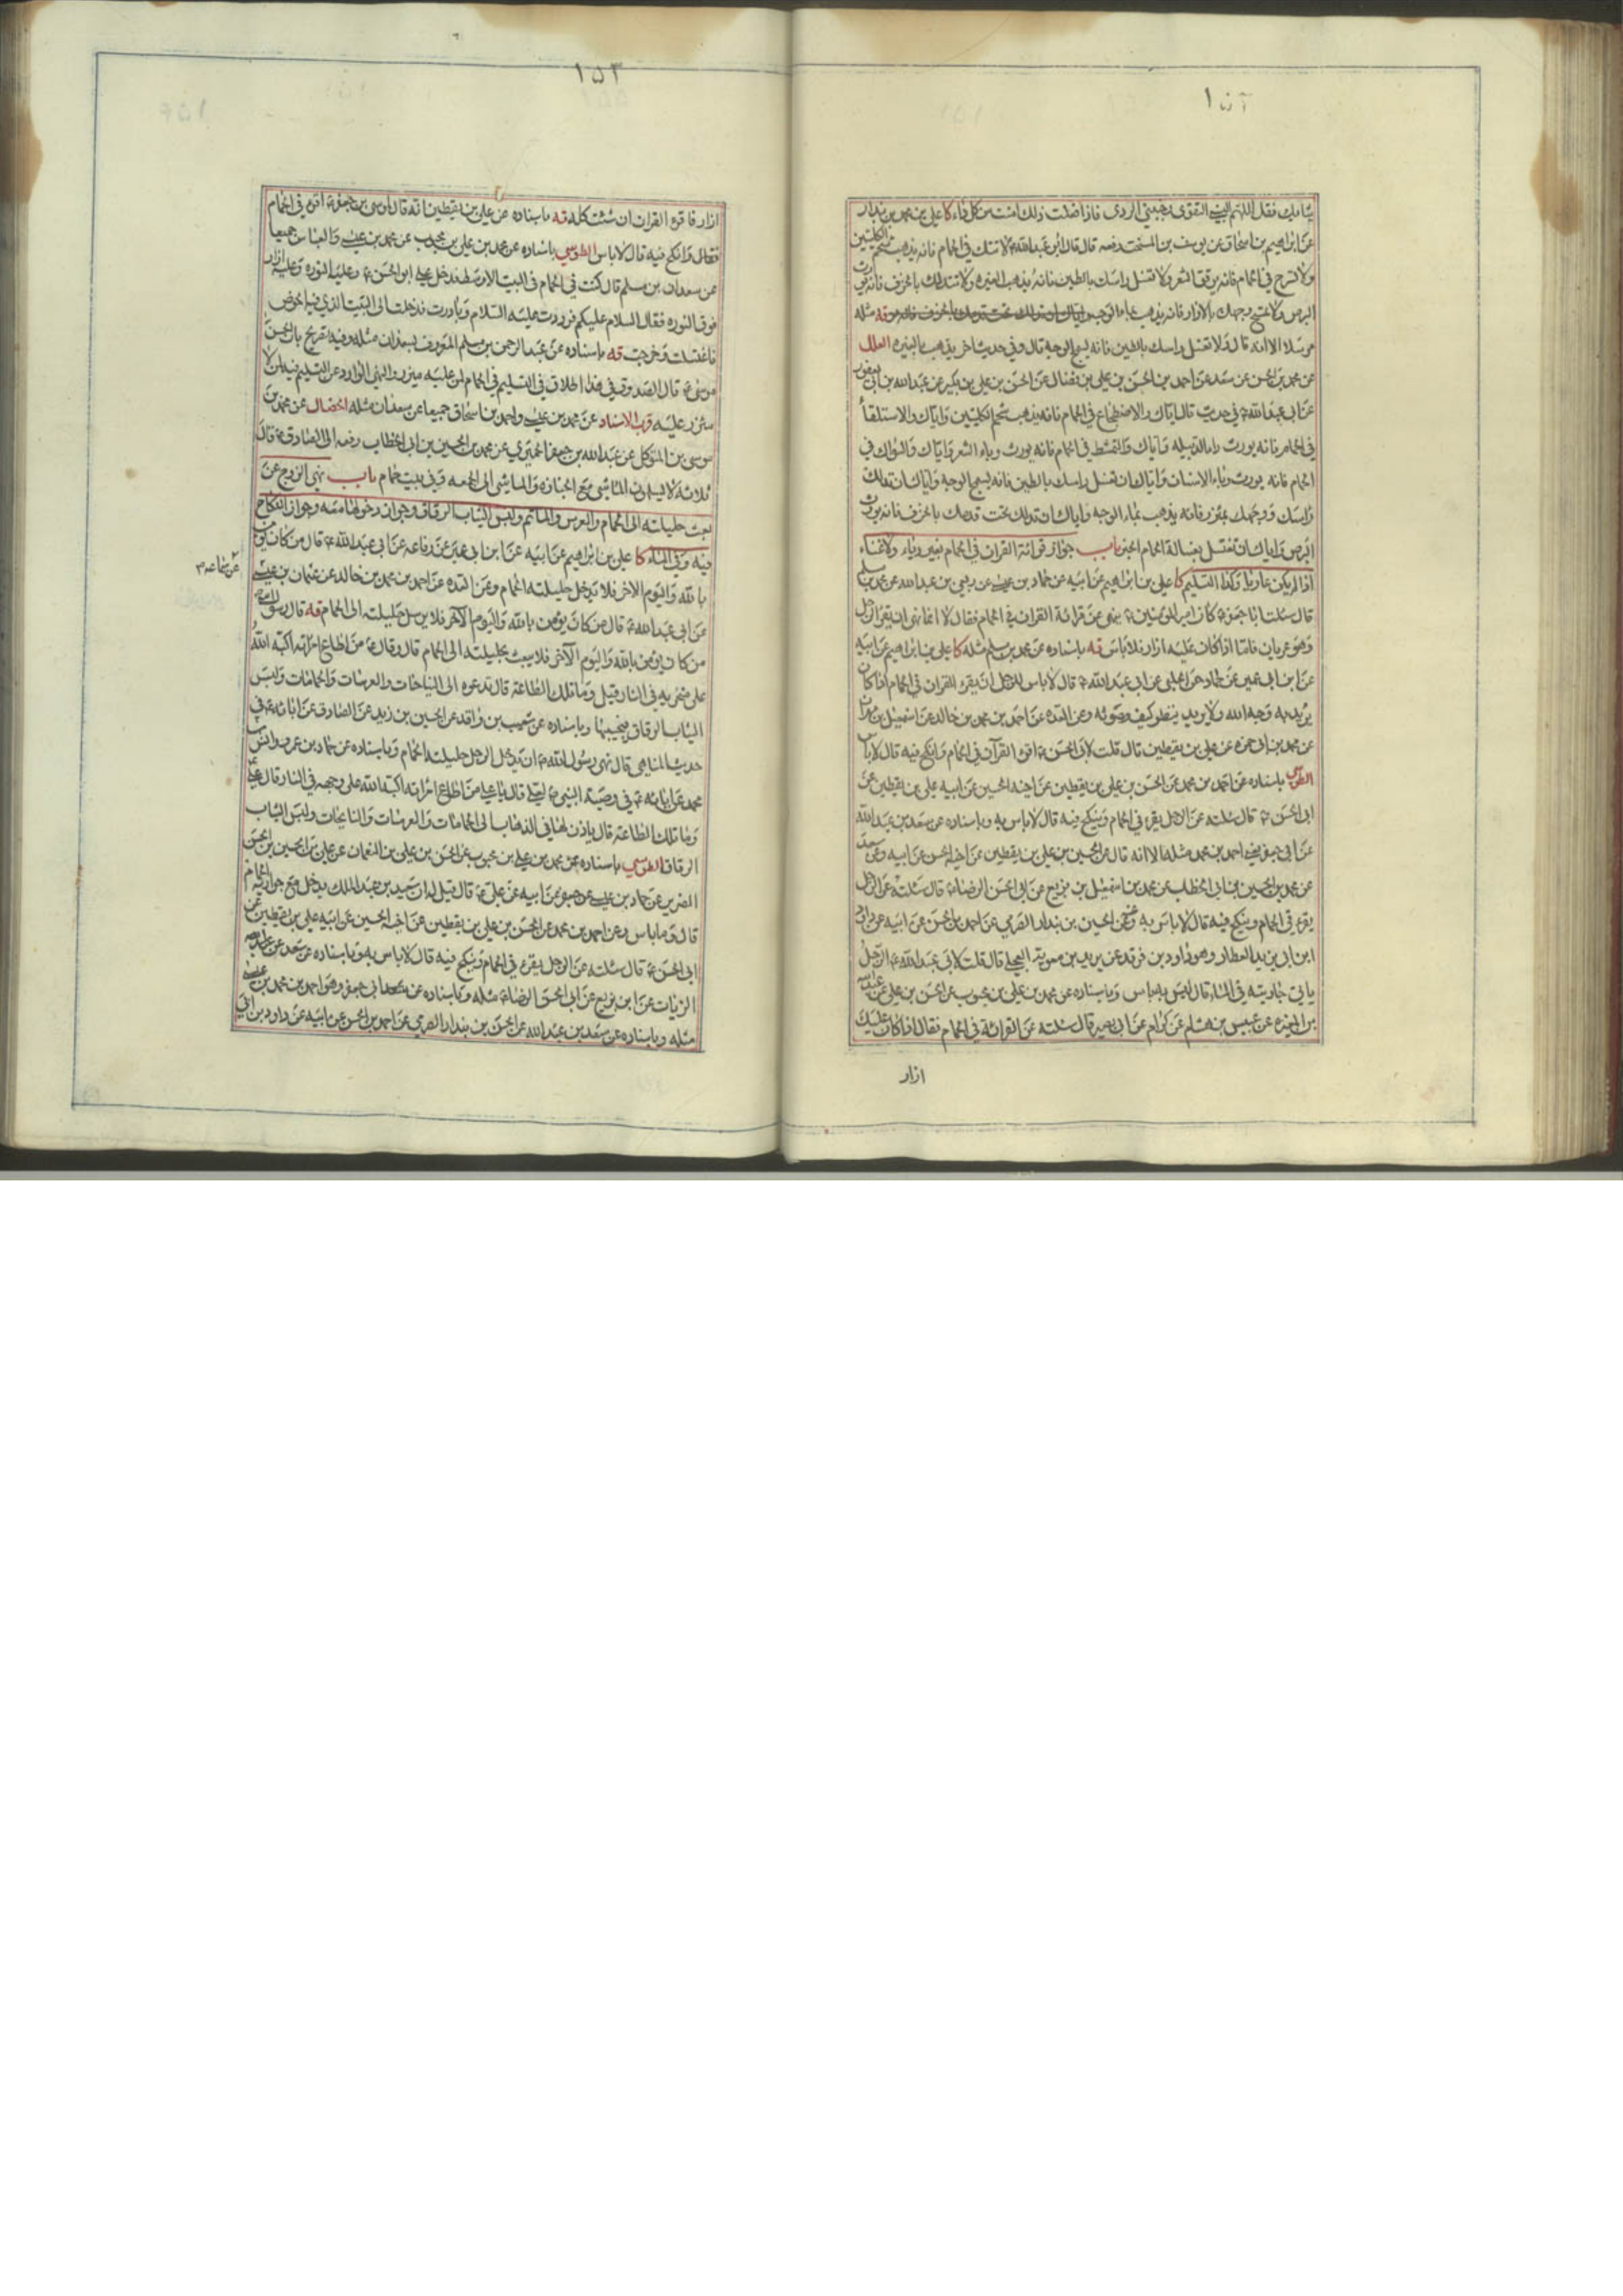 ١٥٢
ثيابك فقل اللهم البسني التقوى وجنبني الردى فاذا فعلت ذلك امنت من كل داء كا علي بن محمد بن بندار
عن ابراهيم بن اسحاق عن يوسف بن السخت رفعه قال قال ابو عبد الله ع لا تتك في الحمام فانه يذهب شحم الكليتين
ولا تسرح في الحمام فانه يرقق الشعر ولا تغسل راسك بالطين فانه يذهب بالغيره ولا تتدلك بالخزف فانه يورث
البرص ولا تمسح وجهك بالازار فانه يذهب بماء الوجه قه مثله
مرسلا الا انه قال ولا تغسل راسك بالطين فانه يسمج الوجه قال وفي حديث اخر يذهب بالغيره العلل
عن محمد بن الحسن عن سعد عن احمد بن الحسن بن علي بن فضال عن الحسن بن علي بن بكير عن عبد الله بن ابي يعفور
عن ابي عبد الله ع في حديث قال اياك والاضطجاع في الحمام فانه يذهب شحم الكليتين واياك والاستلقاء
في الحمام فانه يورث داء الدبيله واياك والتمشط في الحمام فانه يورث وباء الشعر واياك والسواك في
الحمام فانه يورث وباء الاسنان واياك ان تغسل راسك بالطين فانه يسمج الوجه واياك ان تدلك
راسك ووجهك بمئزر فانه يذهب بماء الوجه واياك ان تدلك تحت قدمك بالخزف فانه يورث
البرص واياك ان تغتسل بغسالة الحمام الخبر باب جواز قرائة القران في الحمام بغير رياء ولا غناء
اذا لم يكن عاريا وكذا التسليم كا علي بن ابراهيم عن ابيه عن حماد بن عيسى عن ربعي بن عبد الله عن محمد بن مسلم
قال سئلت ابا جعفر ع كان امير المؤمنين ع ينهى عن قرائة القران في الحمام فقال لا انما نهى ان يقرأ الرجل
وهو عريان فاما اذا كان عليه ازار فلا باس قه باسناده عن محمد بن مسلم مثله كا علي بن ابراهيم عن ابيه
عن ابن ابي عمير عن حماد عن الحلبي عن ابي عبد الله ع قال لا باس للرجل ان يقرء القران في الحمام اذا كان
يريد به وجه الله ولا يريد ينظر كيف صوته وعن العده عن احمد بن محمد بن خالد عن اسمعيل بن مهران
عن محمد بن ابي حمزه عن علي بن يقطين قال قلت لابي الحسن ع اقرء القرآن في الحمام وانكح فيه قال لا باس
الطوسي باسناده عن احمد بن محمد عن الحسن بن علي بن يقطين عن اخيه الحسين عن ابيه علي بن يقطين عن
ابي الحسن ع قال سئلته عن الرجل يقرء في الحمام وينكح فيه قال لا باس به وباسناده عن سعد بن عبد الله
عن ابي جعفر يعني احمد بن محمد مثله الا انه قال عن الحسين بن علي بن يقطين عن اخيه الحسن عن ابيه وعن سعد
عن محمد بن الحسين بن ابي الخطاب عن محمد بن اسمعيل بن بزيع عن ابي الحسن الرضا ع قال سئلته عن الرجل
يقرء في الحمام وينكح فيه قال لا باس به وعن الحسين بن بندار الصرمي عن احمد بن الحسن عن ابيه عن داود
ابن ابي يزيد العطار وهو داود بن فرقد عن بريد بن معوية العجلي قال قلت لابي عبد الله ع الرجل
ياتي جاريته في الماء قال ليس به باس وباسناده عن محمد بن علي بن محبوب عن الحسن بن علي عن عبد الله
بن المغيره عن عبيس بن هشام عن كرام عن ابي بصير قال سئلته عن القرائة في الحمام فقال اذا كان عليك
ازار
١٥٣
ازار فاقرء القران ان شئت كله قه باسناده عن علي بن يقطين انه قال لموسى بن جعفر ع اقرء في الحمام
فقال وانكح فيه قال لا باس الطوسي باسناده عن محمد بن علي بن محبوب عن محمد بن عيسى والعباس جميعا
عن سعدان بن مسلم قال كنت في الحمام في البيت الاوسط فدخل علي ابو الحسن ع وعليه النوره وعليه ازار
فوق النوره فقال السلام عليكم فرددت عليه السلام وبادرت فدخلت الى البيت الذي فيه الحوض
فاغتسلت وخرجت قه باسناده عن عبد الرحمن بن مسلم المعروف بسعدان مثله وفيه تصريح بابي الحسن
موسى ع قال الصدوق في هذا اطلاق في التسليم في الحمام لمن عليه ميزر والنهي الوارد عن التسليم فيه لمن لا
مئزر عليه قرب الاسناد عن محمد بن عيسى واحمد بن اسحاق جميعا عن سعدان مثله الخصال عن محمد بن
موسى بن المتوكل عن عبد الله بن جعفر الحميري عن محمد بن الحسين بن ابي الخطاب رفعه الى الصادق ع قال
ثلاثة لا يسلمون الماشي مع الجنازه والماشي الى الجمعه وفي بيت حمام باب نهي الزوج عن
بعث حليلته الى الحمام والعرس والماتم ولبس الثياب الرقاق وجواز دخولها معه وجواز النكاح
فيه وفي الماء كا علي بن ابراهيم عن ابيه عن ابن ابي عمير عن رفاعه عن ابي عبد الله ع قال من كان يؤمن
بالله واليوم الاخر فلا يدخل حليلته الحمام وعن العده عن احمد بن محمد بن خالد عن عثمان بن عيسى
عن سماعه م
عن ابي عبد الله ع قال من كان يؤمن بالله واليوم الآخر فلا يرسل حليلته الى الحمام قه قال رسول الله ص
من كان يؤمن بالله واليوم الآخر فلا يبعث بحليلته الى الحمام قال وقال ع من اطاع امراته اكبه الله
على منخريه في النار قيل وما تلك الطاعة قال تدعوه الى النياحات والعرسات والحمامات ولبس
الثياب الرقاق فيجيبها وباسناده عن شعيب بن واقد عن الحسين بن زيد عن الصادق عن ابائه ع في
حديث المناهي قال نهى رسول الله ص ان يدخل الرجل حليلته الحمام وباسناده عن حماد بن عمرو وانس بن
محمد عن ابائه ع في وصية النبي ص لعلي قال يا علي من اطاع امراته اكبه الله على وجهه في النار قال علي
وما تلك الطاعة قال ياذن لها في الذهاب الى الحمامات والعرسات والنايحات ولبس الثياب
الرقاق الطوسي باسناده عن محمد بن علي بن محبوب عن الحسن بن علي بن النعمان عن علي بن الحسين بن الحسن
الضرير عن حماد بن عيسى عن جعفر عن ابيه عن علي ع قال قيل له ان سعيد بن عبد الملك يدخل مع جواريه الحمام
قال وما باس وعن احمد بن محمد عن الحسن بن علي بن يقطين عن اخيه الحسين عن ابيه علي بن يقطين عن
ابي الحسن ع قال سئلته عن الرجل يقرء في الحمام وينكح فيه قال لا باس به وباسناده عن سعد عن
الزيات عن ابن بزيع عن ابي الحسن الرضا ع مثله وباسناده عن سعد عن ابي جعفر وهو احمد بن محمد بن عيسى
مثله وباسناده عن سعد بن عبد الله عن الحسن بن بندار الصرمي عن احمد بن الحسن عن ابيه عن داود بن ابي